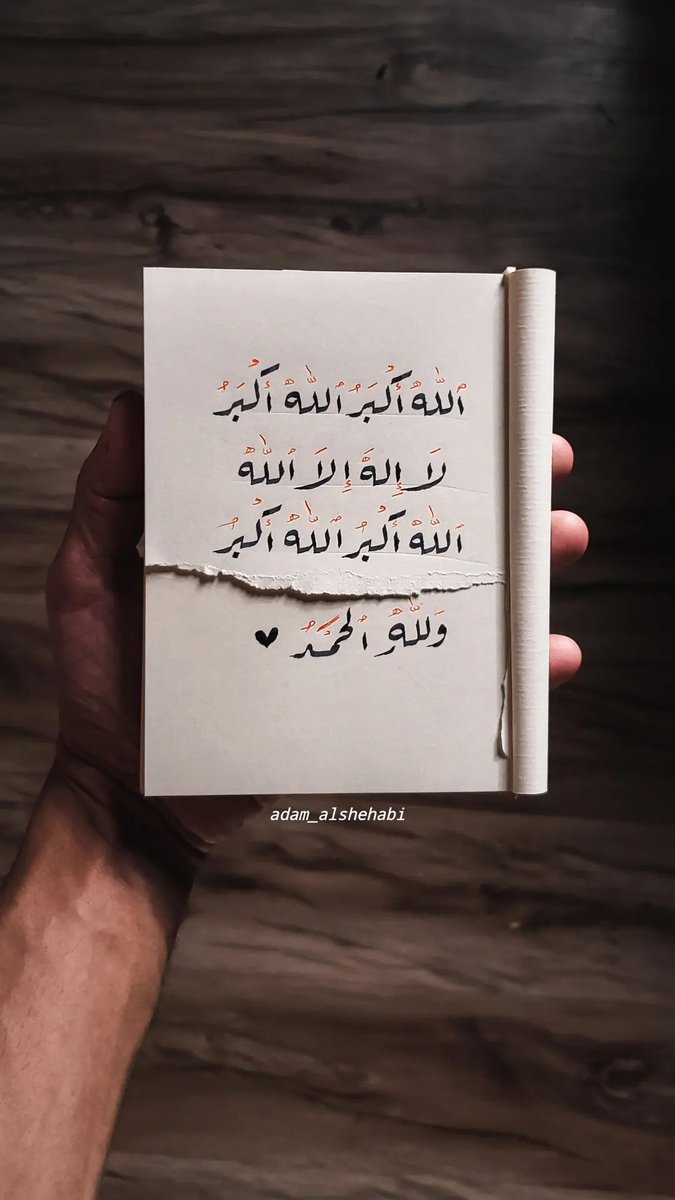 ٱللهُ أَكْبَرُ ٱللهُ أَكْبَرُ
لَا إِلهَ إِلَا ٱللهُ
ٱللهُ أَكْبَرُ ٱللهُ أَكْبَرُ
وَلِلّٰهِ ٱلحَمْدُ ♥
adam_alshehabi